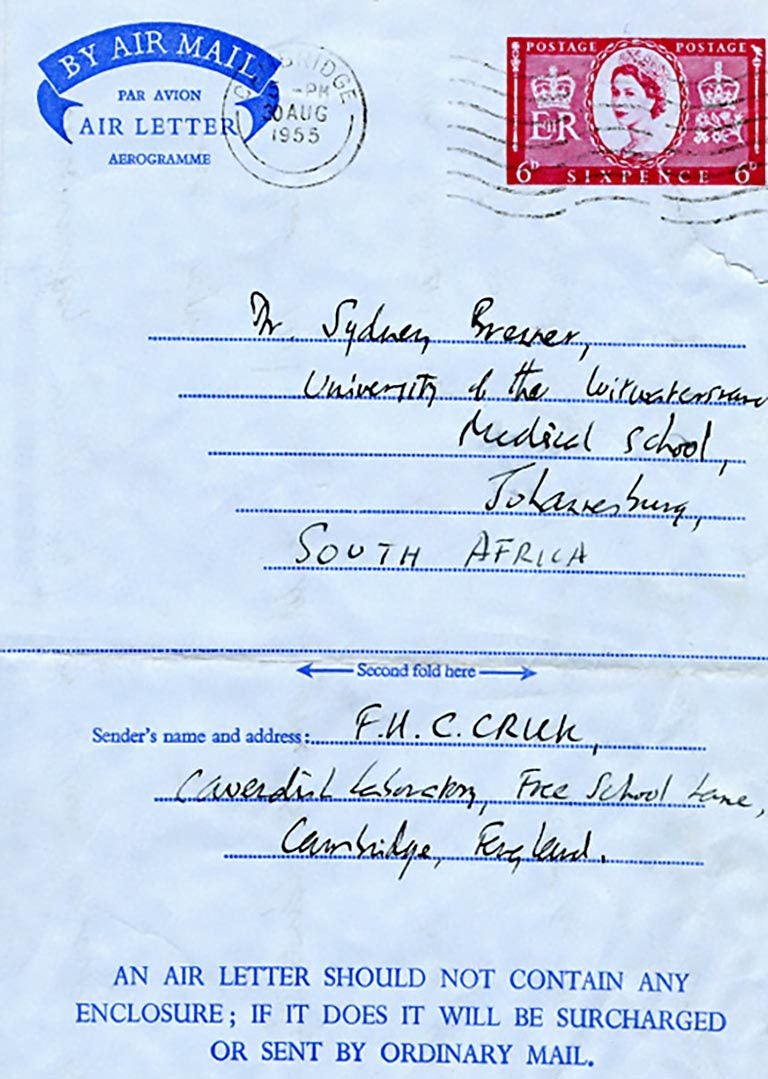 BY AIR MAIL
PAR AVION
AIR LETTER
AEROGRAMME
CAMBRIDGE
5 -PM
30 AUG
1955
POSTAGE POSTAGE
E II R
6D SIXPENCE 6D
Dr. Sydney Brenner,
University of the Witwatersrand
Medical School,
Johannesburg,
SOUTH AFRICA
Second fold here
Sender's name and address: F.H.C. CRICK,
Cavendish Laboratory, Free School Lane,
Cambridge, England.
AN AIR LETTER SHOULD NOT CONTAIN ANY
ENCLOSURE; IF IT DOES IT WILL BE SURCHARGED
OR SENT BY ORDINARY MAIL.